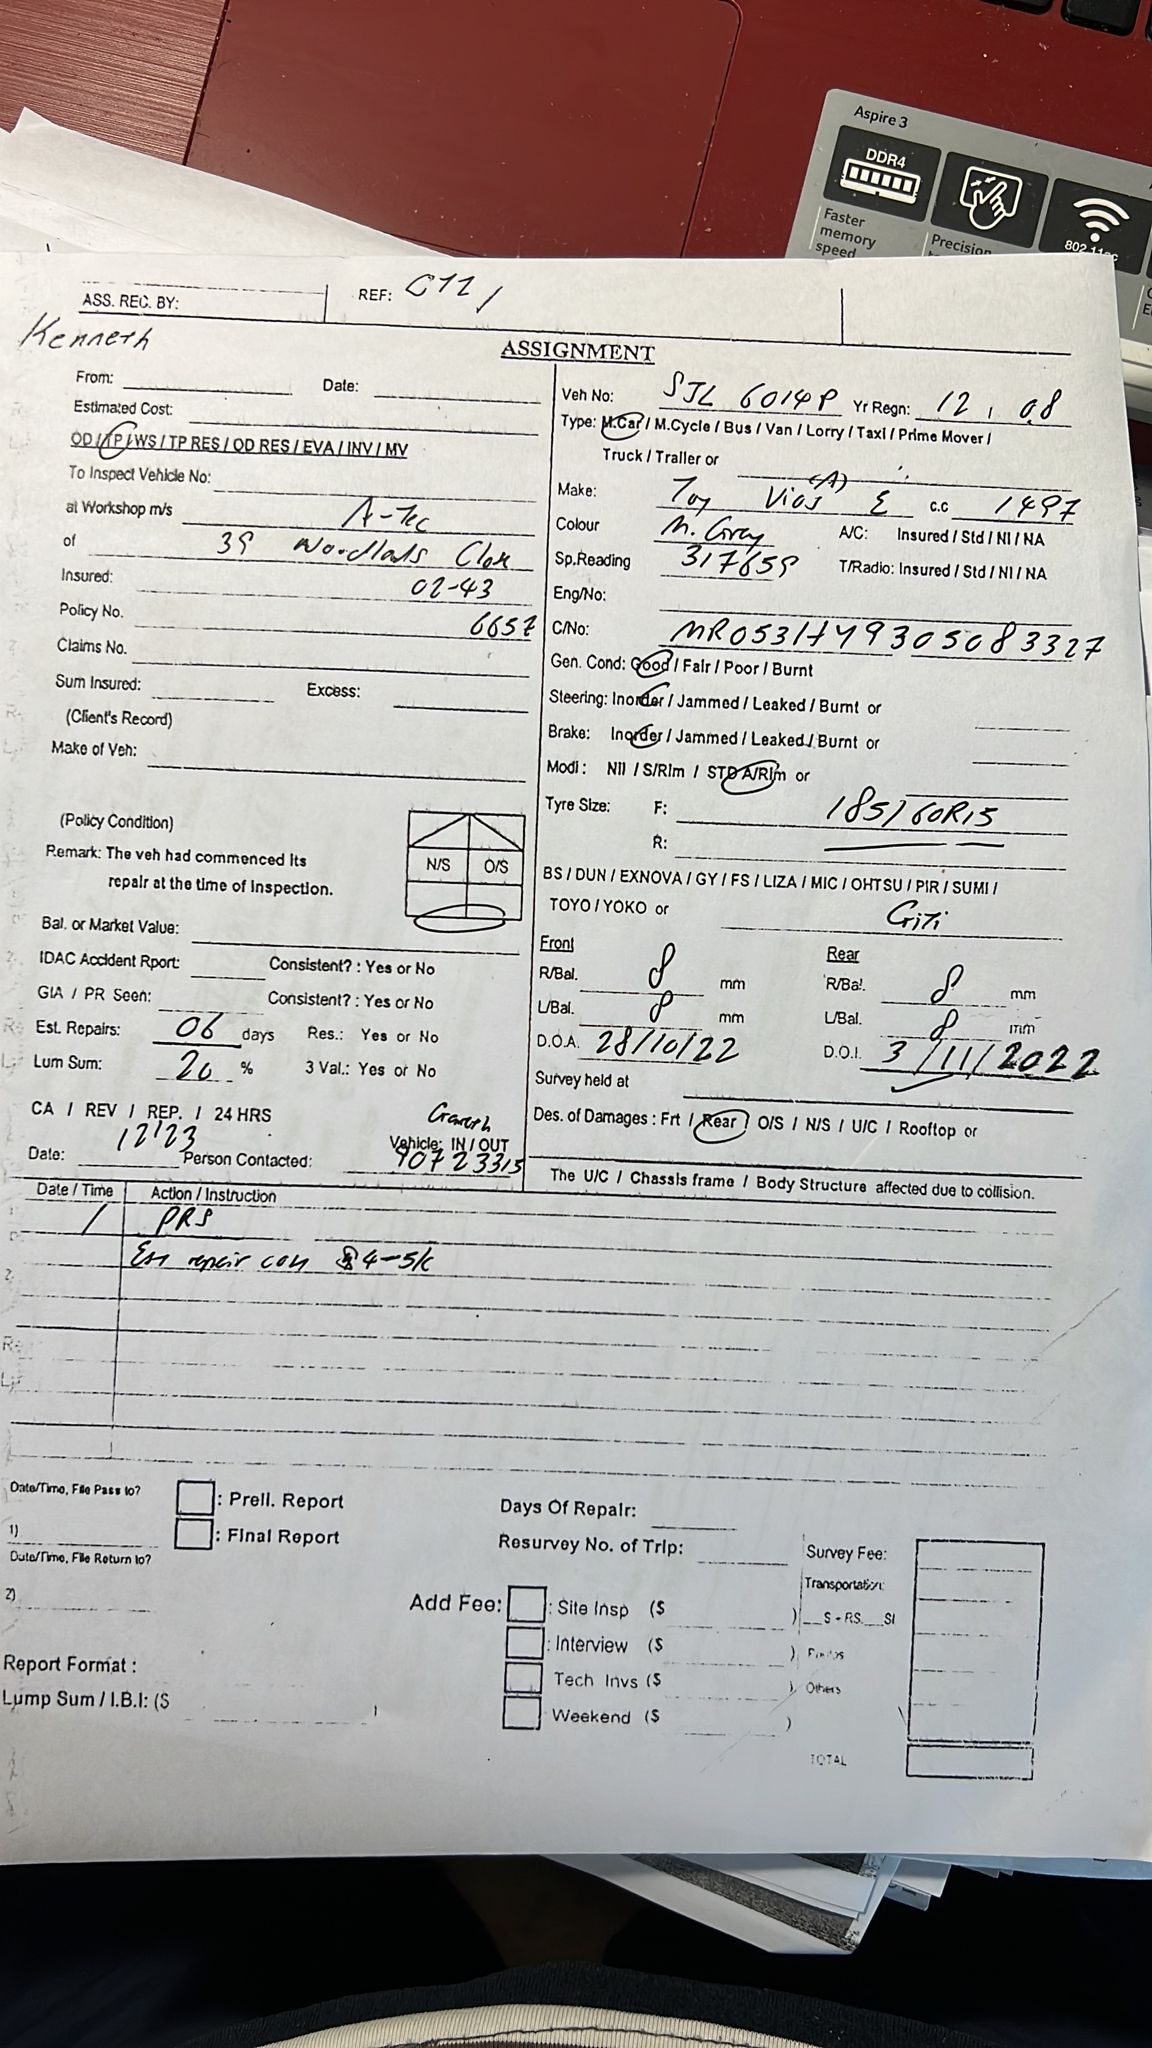 Aspire 3
DDR4
Faster
memory
speed
Precision
802.11ac
ASS. REC. BY:
REF:
Kenneth
ASSIGNMENT
From: Date:
Estimated Cost:
OD / TP / WS / TP RES / OD RES / EVA / INV / MV
To Inspect Vehicle No:
at Workshop m/s A-Tec
of 39 Woodlands Close
Insured: 02-43
Policy No. 6657
Claims No.
Sum Insured: Excess:
(Client's Record)
Make of Veh:
(Policy Condition)
Remark: The veh had commenced its
repair at the time of inspection.
N/S O/S
Bal. or Market Value:
IDAC Accident Rport: Consistent? : Yes or No
GIA / PR Seen: Consistent? : Yes or No
Est. Repairs: 06 days Res.: Yes or No
Lum Sum: 20 % 3 Val.: Yes or No
CA / REV / REP. / 24 HRS
Vehicle: IN / OUT
Date: Person Contacted: 90723315
Veh No: SJL 6014P Yr Regn: 12 , 08
Type: M.Car / M.Cycle / Bus / Van / Lorry / Taxi / Prime Mover /
Truck / Trailer or
Make: Toy Vios E (A) c.c 1497
Colour M. Grey A/C: Insured / Std / NI / NA
Sp.Reading 317659 T/Radio: Insured / Std / NI / NA
Eng/No:
C/No: MR053HY9305083327
Gen. Cond: Good / Fair / Poor / Burnt
Steering: Inorder / Jammed / Leaked / Burnt or
Brake: Inorder / Jammed / Leaked / Burnt or
Modi: Nil / S/Rim / STD A/Rim or
Tyre Size: F: 185/60R15
R:
BS / DUN / EXNOVA / GY / FS / LIZA / MIC / OHTSU / PIR / SUMI /
TOYO / YOKO or Giti
Front Rear
R/Bal. 8 mm R/Bal. 8 mm
L/Bal. 8 mm L/Bal. 8 mm
D.O.A. 28/10/22 D.O.I. 3/11/2022
Survey held at
Des. of Damages : Frt / Rear / O/S / N/S / U/C / Rooftop or
The U/C / Chassis frame / Body Structure affected due to collision.
Date / Time Action / Instruction
/ PRS
Est repair cost $4-5k
Date/Time, File Pass to?
: Preli. Report
Days Of Repair:
1)
: Final Report
Resurvey No. of Trip:
Survey Fee:
Date/Time, File Return to?
Transportation:
2)
Add Fee: : Site Insp ($ )
__S - RS.__SI
: Interview ($ )
Photos
Report Format :
Tech Invs ($ )
Others
Lump Sum / I.B.I: ($ )
Weekend ($ )
TOTAL